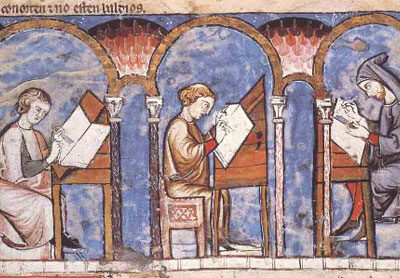 conorten ⁊ no esten baldios.